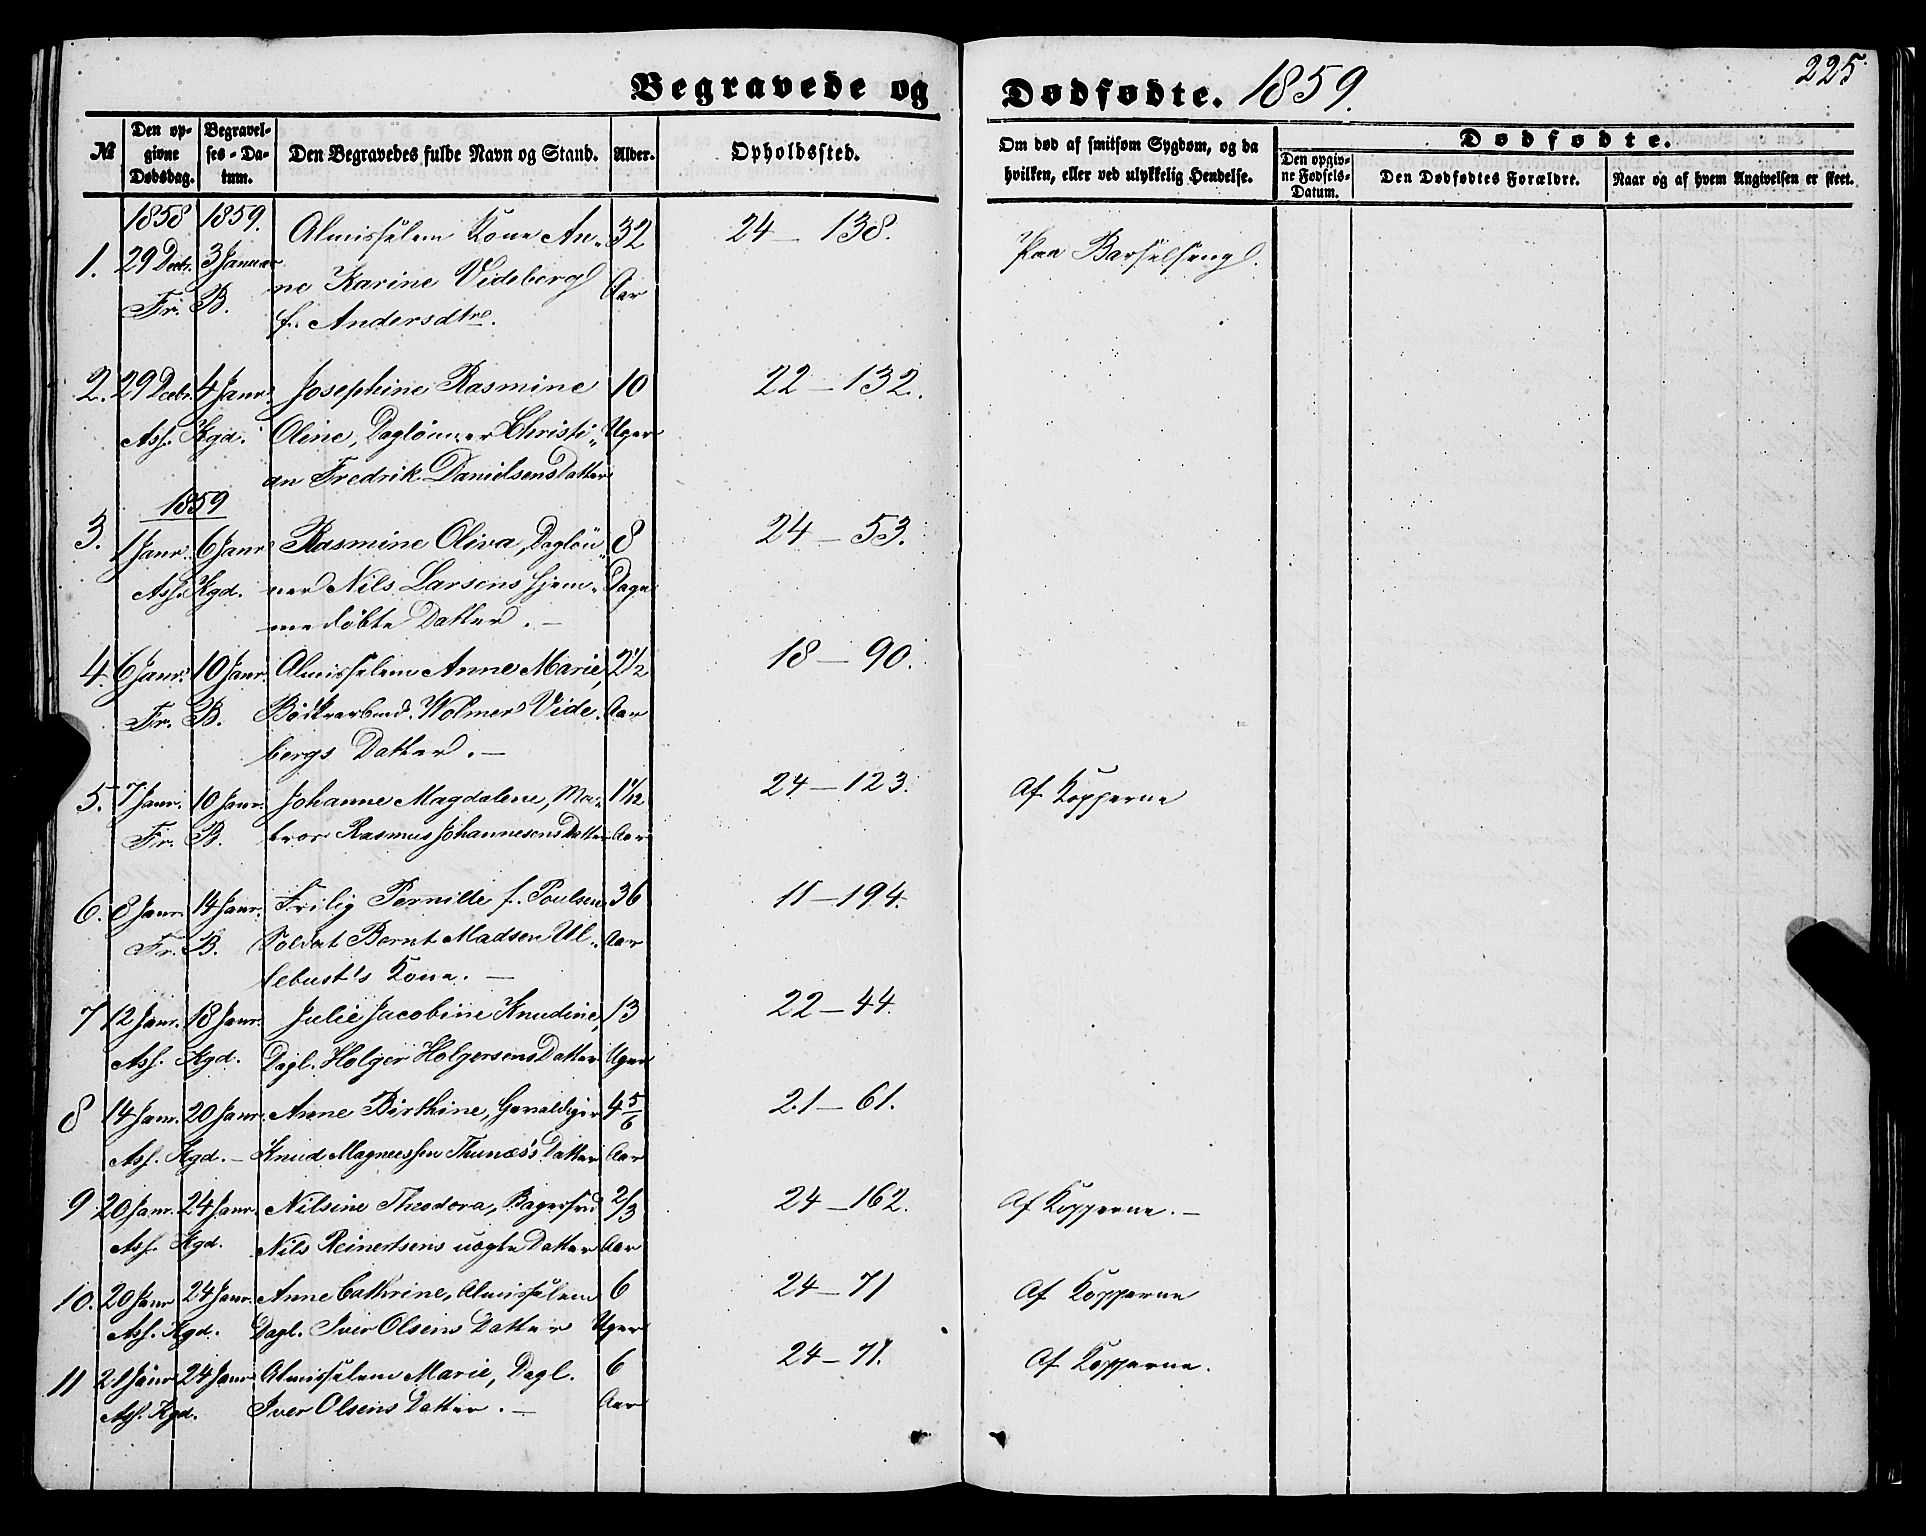 Begravede og Dødfødte. 1859.
225.
№
Den opgivne Dødsdag.
Begravelses-Datum.
Den Begravedes fulde Navn og Stand.
Alder.
Opholdssted.
Om død af smitsom Sygdom, og da hvilken, eller ved ulykkelig Hendelse.
Dødfødte.
Den opgivne Fødsels-Datum.
Den Dødfødtes Forældre.
Naar og af hvem Angivelsen er skeet.
1858 1859.
1. 29 Decbr. 3 Januar Almisselem Kone An- 32 24 – 138. Paa Barselseng.
ne Karine Videberg Aar
Fr. B. f. Andersdtr.
2. 29 Decbr. 4 Janr. Josephine Rasmine 10 22 – 132.
Ass. Kgd. Oline, Daglønner Christi- Uger
an Fredrik Danielsens Datter
1859
3. 1 Janr. 6 Janr. Rasmine Oliva, Dagløn- 8 24 – 53.
Ass. Kgd. ner Nils Larsens hjem- Dage
medøbte Datter. –
4. 6 Janr. 10 Janr. Almisselem Anne Marie, 2½ 18 – 90.
Fr. B. Bødkerarbeid. Wolmer Vide- Aar
bergs Datter. –
5. 7 Janr. 10 Janr. Johanne Magdalene, Ma- 1 1/12 24 – 123. Af Kopperne
Fr. B. tros Rasmus Johannesens Datter Aar
6. 8 Janr. 14 Janr. Frilig Pernille f. Poulsen 36 11 – 194.
Fr. B. Soldat Bernt Madsen Ul- Aar
lebust's Kone. –
7 12 Janr. 18 Janr. Julie Jacobine Knudine, 13 22 – 44.
Ass. Kgd. Dagl. Holger Holgersens Datter Uger
8 14 Janr. 20 Janr. Anne Birthine, Gevaldiger 4 5/6 21 – 61.
Ass. Kgd. – Knud Magnussen Thunæs's Datter Aar
9 20 Janr. 24 Janr. Nilsine Theodora, Bagersvd 2/3 24 – 162. Af Kopperne. –
Ass. Kgd. Nils Reinertsens uægte Datter Aar
10. 20 Janr 24 Janr. Anne Cathrine, Almisselem 6 24 – 71 Af Kopperne
Ass. Kgd. Dagl. Iver Olsens Datter Uger
11 21 Janr 24 Janr Almisselem Marie, Dagl. 6 24 – 71. Af Kopperne.
Ass. Kgd. Iver Olsens Datter. – Aar